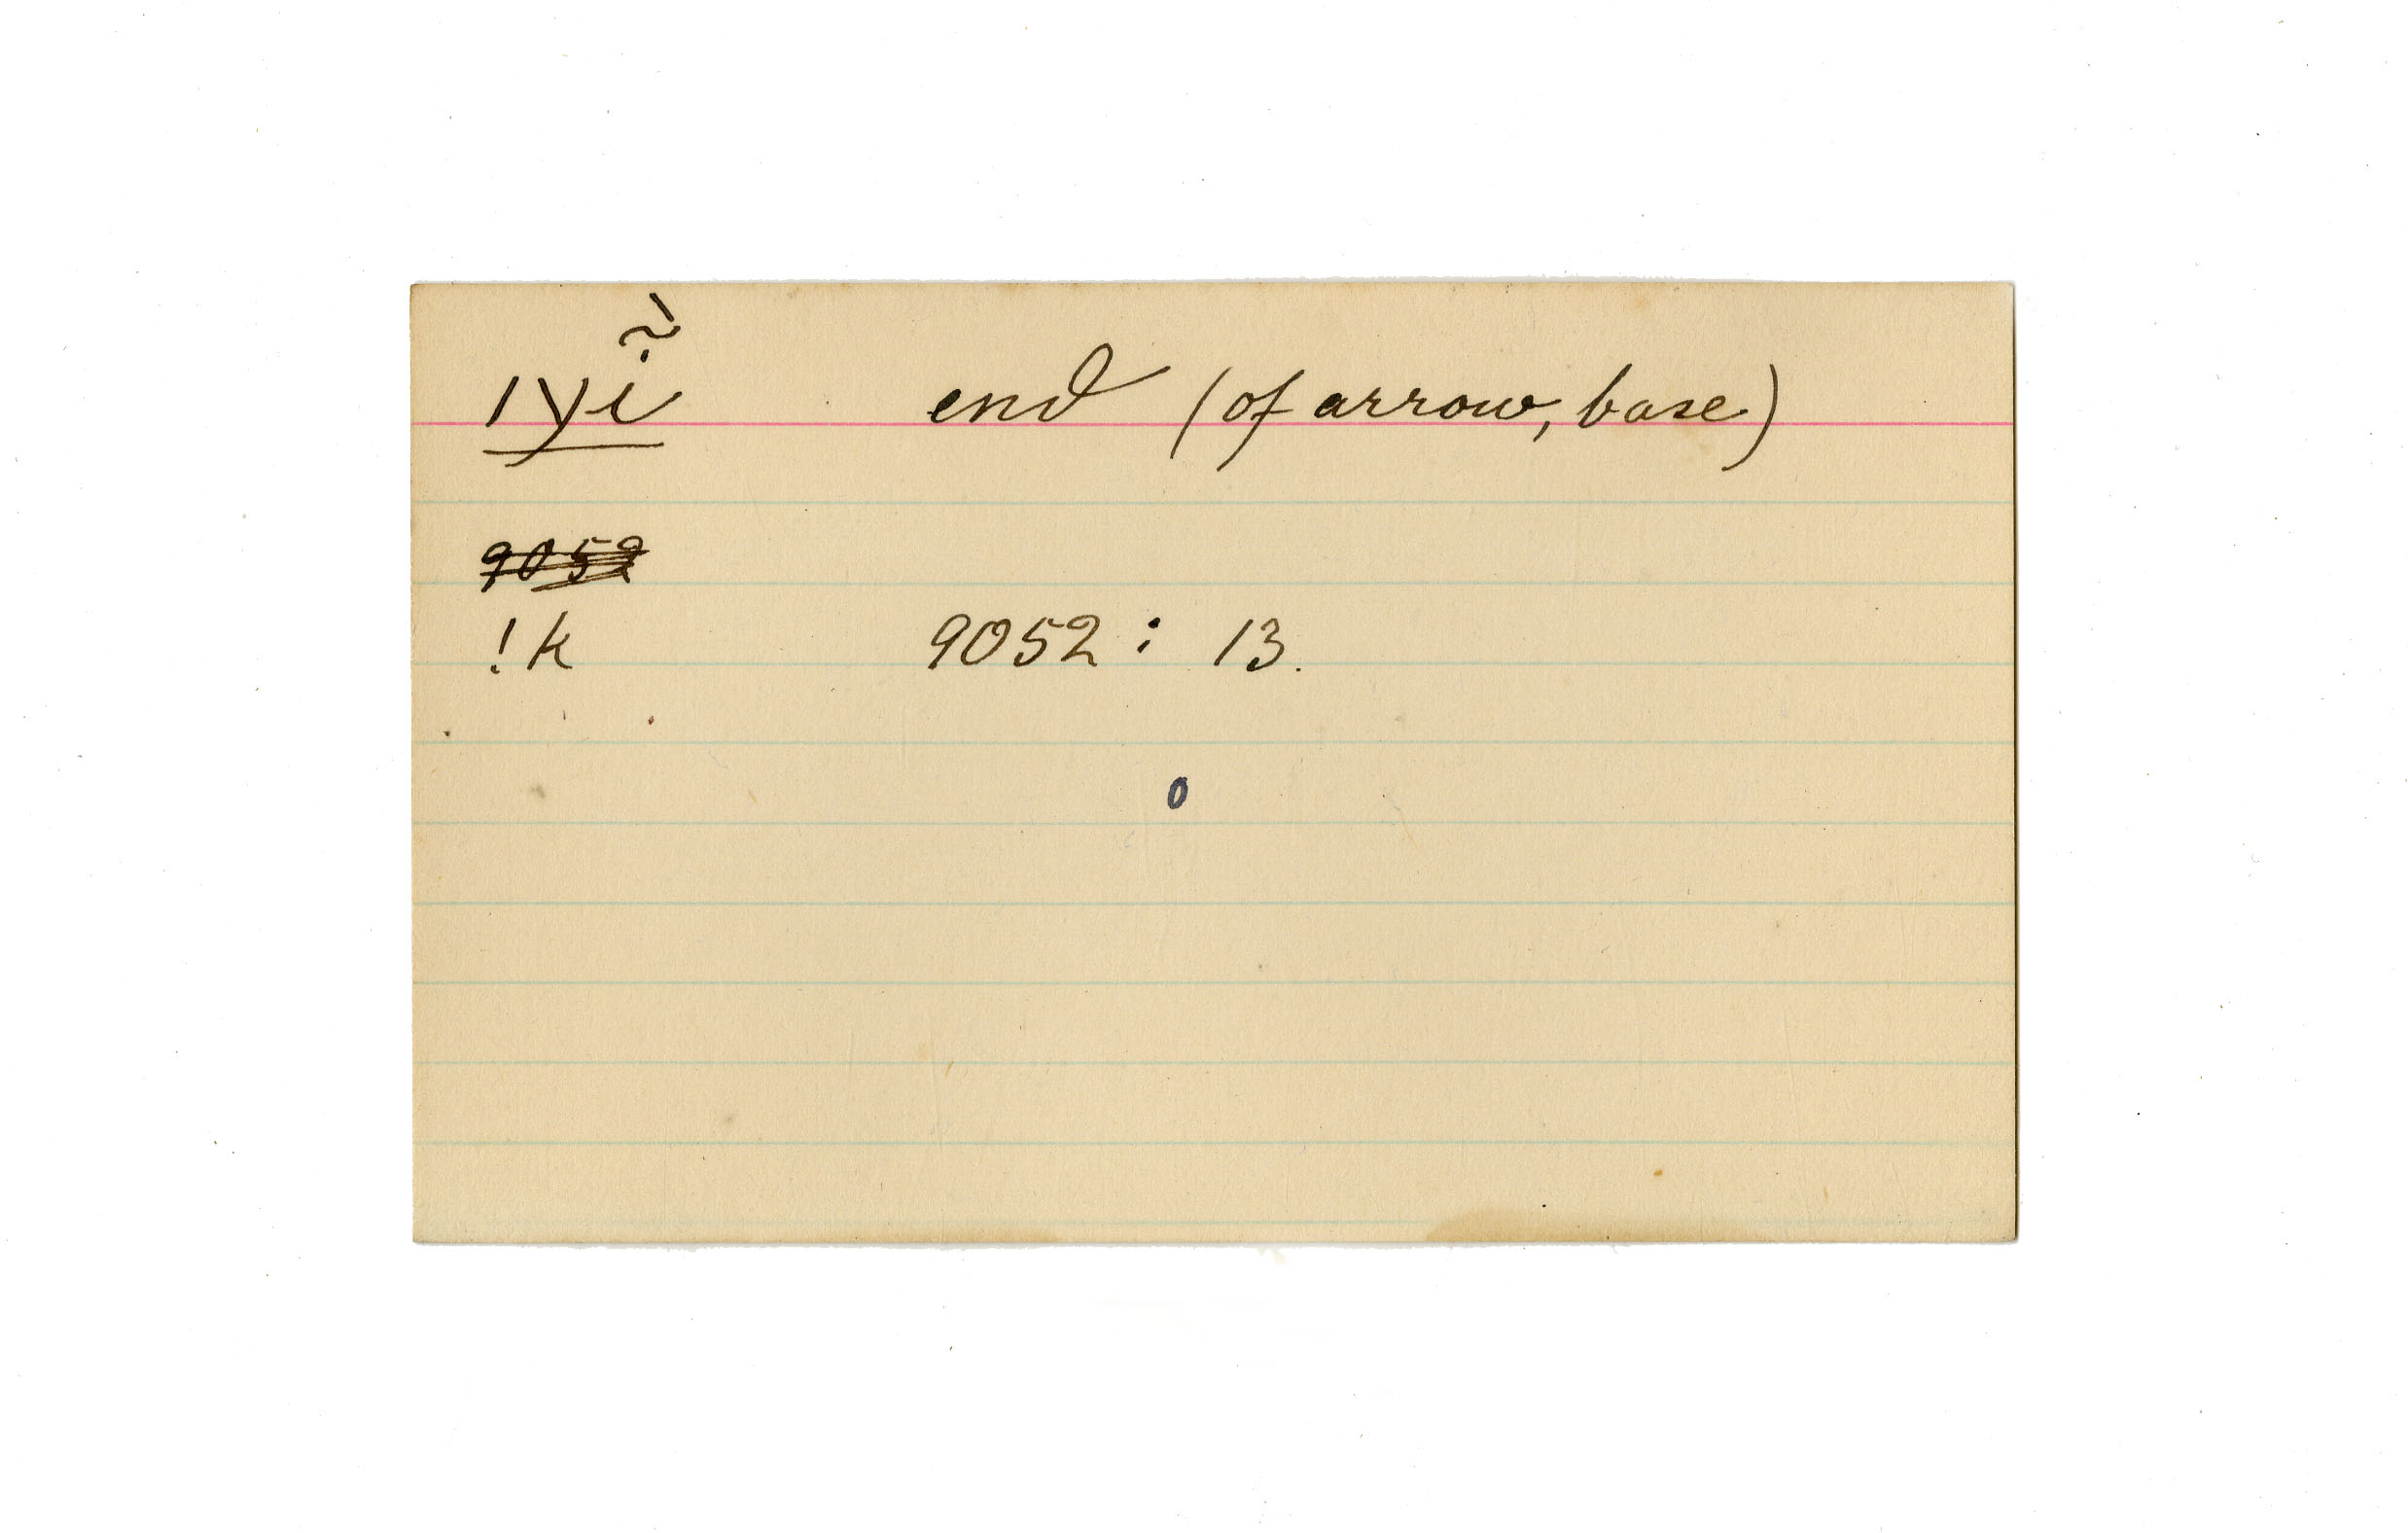 ǀyĩ̀ end (of arrow, base)
9052
!k 9052 : 13.
0